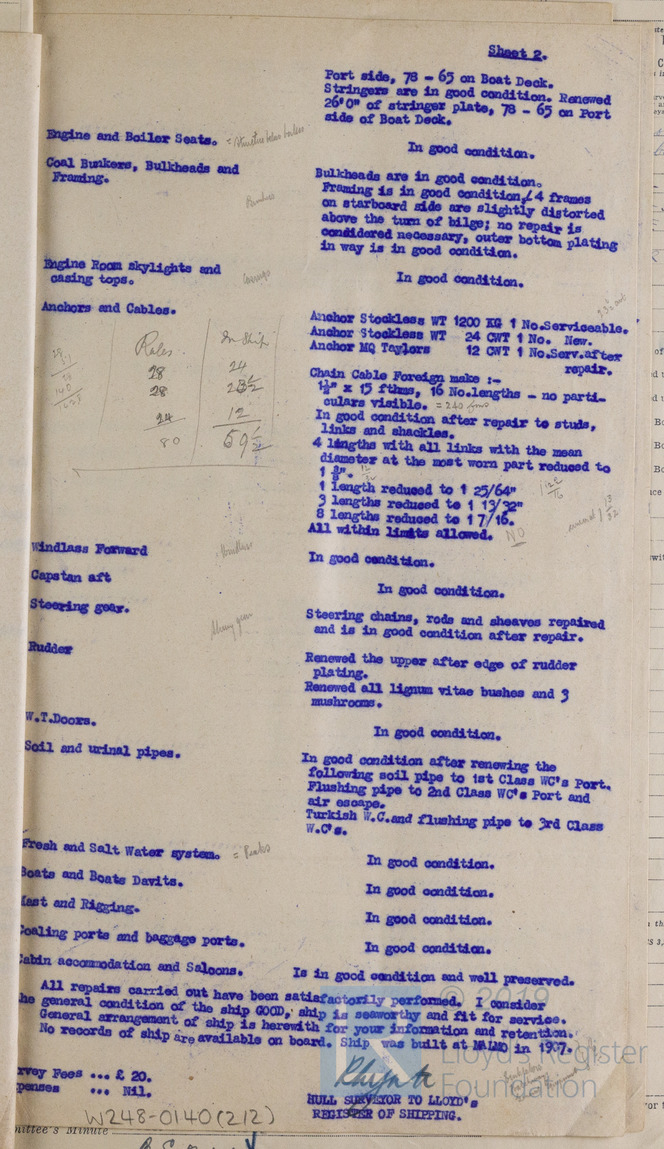 Sheet 2.
Port side, 78 - 65 on Boat Deck.
Stringers are in good condition. Renewed
26'0" of stringer plate, 78 - 65 on Port
side of Boat Deck.
Engine and Boiler Seats.
In good condition.
Coal Bunkers, Bulkheads and
Framing.
Bulkheads are in good condition.
Framing is in good condition, 4 frames
on starboard side are slightly distorted
above the turn of bilge; no repair is
considered necessary, outer bottom plating
in way is in good condition.
Bunkers
Engine Room skylights and
casing tops.
Coverings
In good condition.
Anchors and Cables.
Anchor Stockless WT 1200 KG 1 No.Serviceable.
Anchor Stockless WT 24 CWT 1 No. New.
Anchor MQ Taylors 12 CWT 1 No.Serv.after
repair.
Rules. In Ship
28 24
28 23½
24 12
80 59½
Chain Cable Foreign make :-
1½" x 15 fthms, 16 No.lengths - no parti-
culars visible. = 240 fms
In good condition after repair to studs,
links and shackles.
4 lengths with all links with the mean
diameter at the most worn part reduced to
1 3/8".
1 length reduced to 1 25/64"
3 lengths reduced to 1 13/32"
8 lengths reduced to 1 7/16.
All within limits allowed. NO
Windlass Forward
Windlass
In good condition.
Capstan aft
In good condition.
Steering gear.
Steering gear
Steering chains, rods and sheaves repaired
and is in good condition after repair.
Rudder
Renewed the upper after edge of rudder
plating.
Renewed all lignum vitae bushes and 3
mushrooms.
W.T.Doors.
In good condition.
Soil and urinal pipes.
In good condition after renewing the
following soil pipe to 1st Class WC's Port.
Flushing pipe to 2nd Class WC's Port and
air escape.
Turkish W.C.and flushing pipe to 3rd Class
W.C's.
Fresh and Salt Water system. = Peaks
In good condition.
Boats and Boats Davits.
In good condition.
Mast and Rigging.
In good condition.
Coaling ports and baggage ports.
In good condition.
Cabin accommodation and Saloons.
Is in good condition and well preserved.
All repairs carried out have been satisfactorily performed. I consider
the general condition of the ship GOOD, ship is seaworthy and fit for service.
General arrangement of ship is herewith for your information and retention.
No records of ship are available on board. Ship was built at MALMO in 1907.
rvey Fees ... £ 20.
penses ... Nil.
HULL SURVEYOR TO LLOYD's
REGISTER OF SHIPPING.
W248-0140(212)
mittee's Minute
© 2019
Lloyd's Register
Foundation